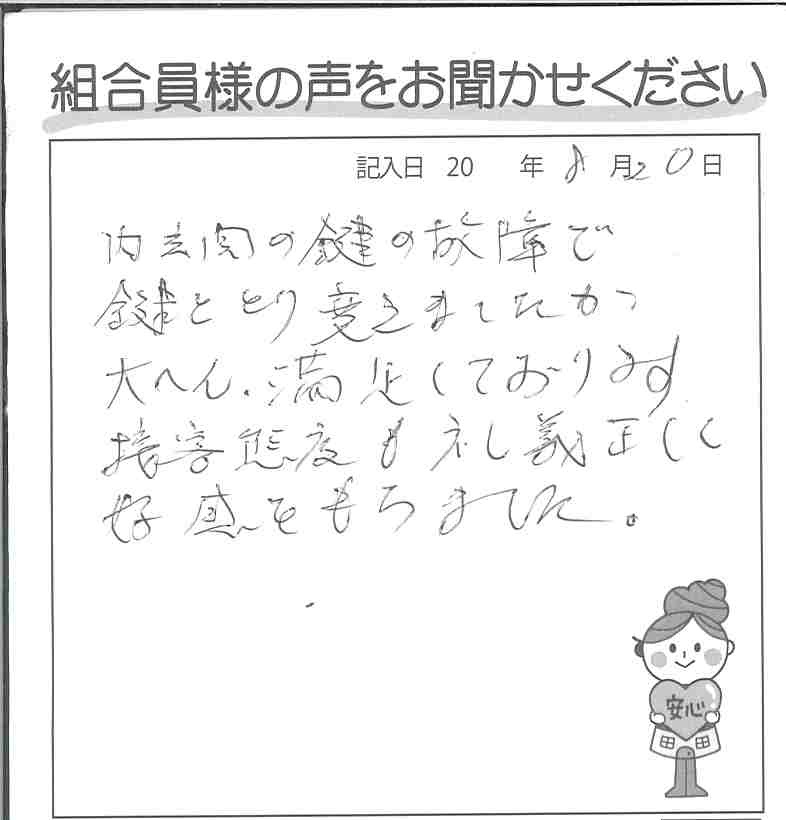 組合員様の声をお聞かせください
記入日 20 年 8 月 20 日
内玄関の鍵の故障で
鍵をとり変えましたが
大へん、満足しております
接客態度も礼義正しく
好感をもちました。
安心